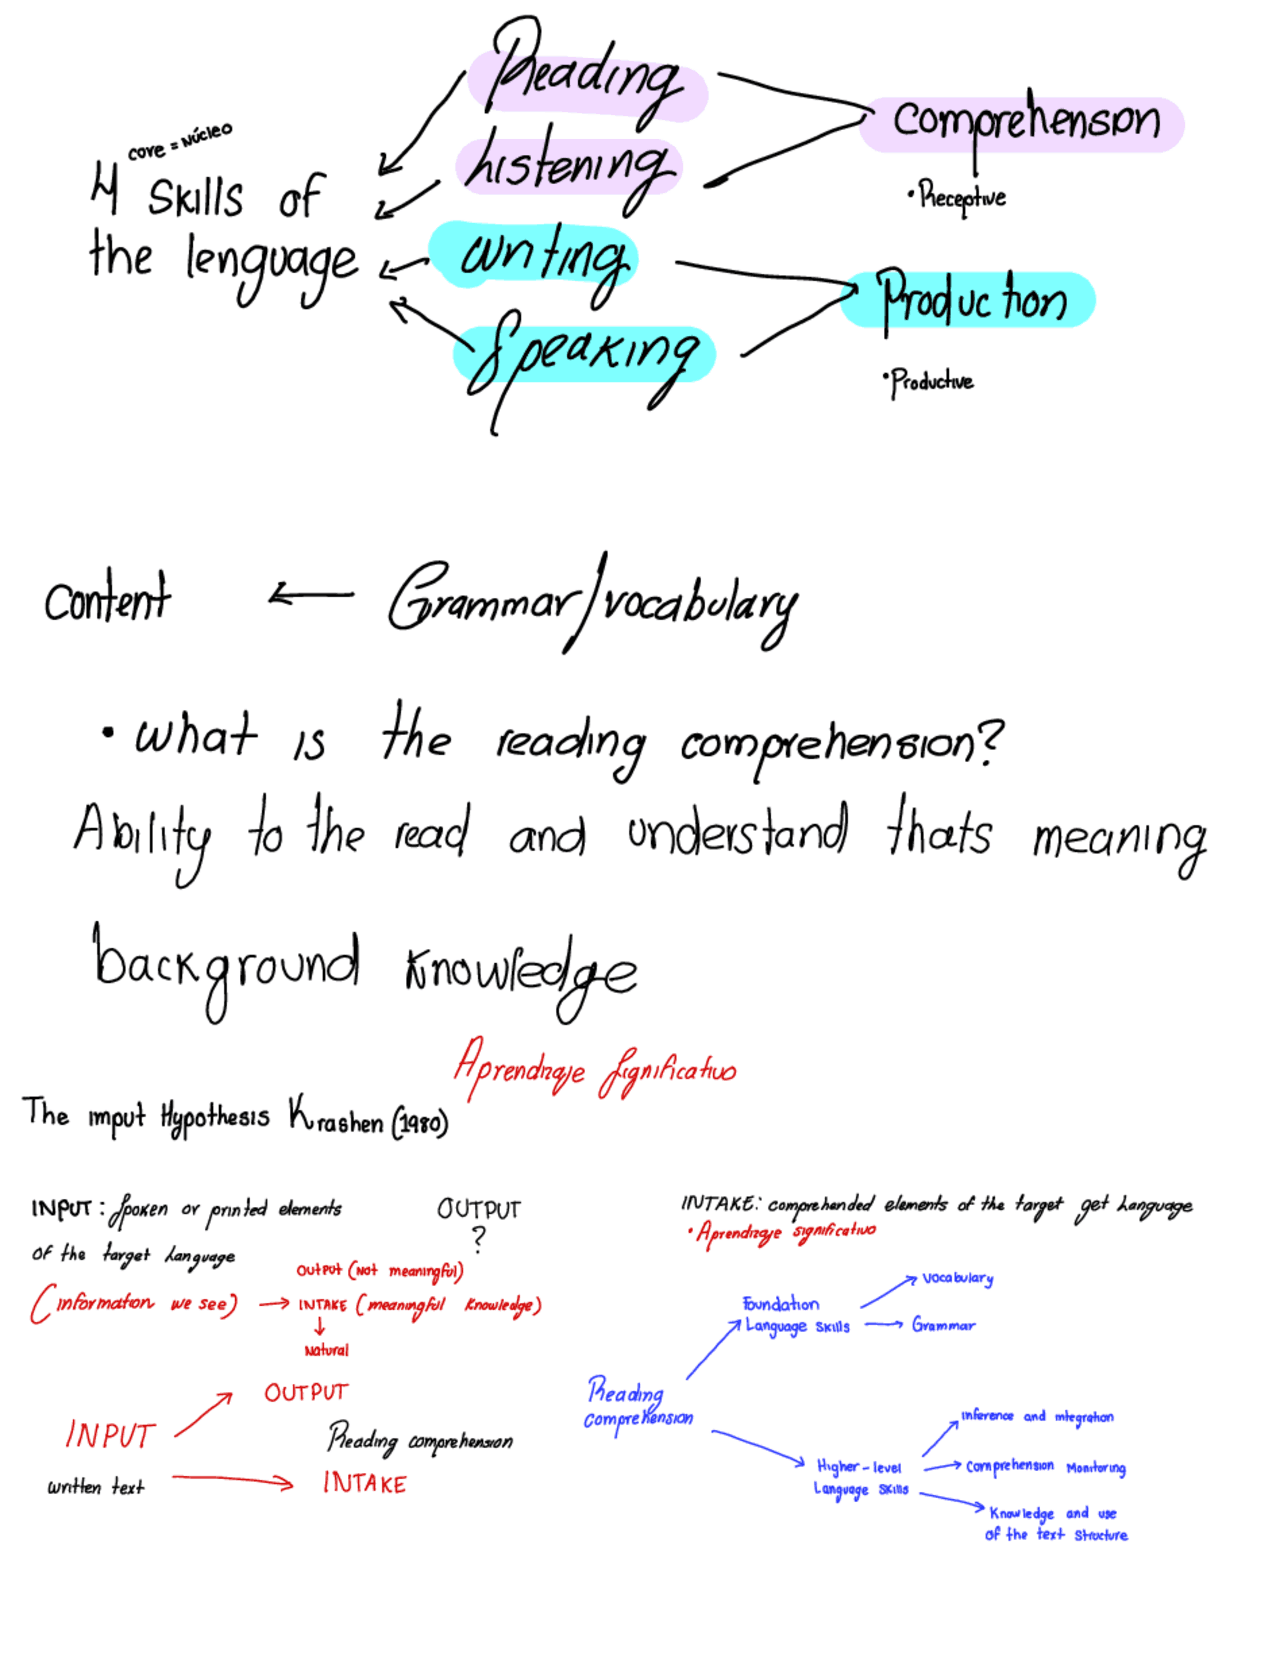 Reading
Listening
writing
Speaking
core = Núcleo
4 Skills of
the lenguage
comprehension
• Receptive
Production
• Productive
content ← Grammar/vocabulary
• what is the reading comprehension?
Ability to the read and understand thats meaning
background knowledge
Aprendizaje Significativo
The imput Hypothesis Krashen (1980)
INPUT: Spoken or printed elements
of the target Language
(information we see) →
OUTPUT
?
OUTPUT (Not meaningful)
INTAKE (meaningful knowledge)
↓
Natural
INPUT
written text
OUTPUT
Reading comprehension
INTAKE
INTAKE: comprehended elements of the target get Language
• Aprendizaje significativo
Reading
comprehension
Foundation
Language skills
vocabulary
Grammar
Higher-level
Language skills
inference and integration
comprehension Monitoring
Knowledge and use
of the text structure